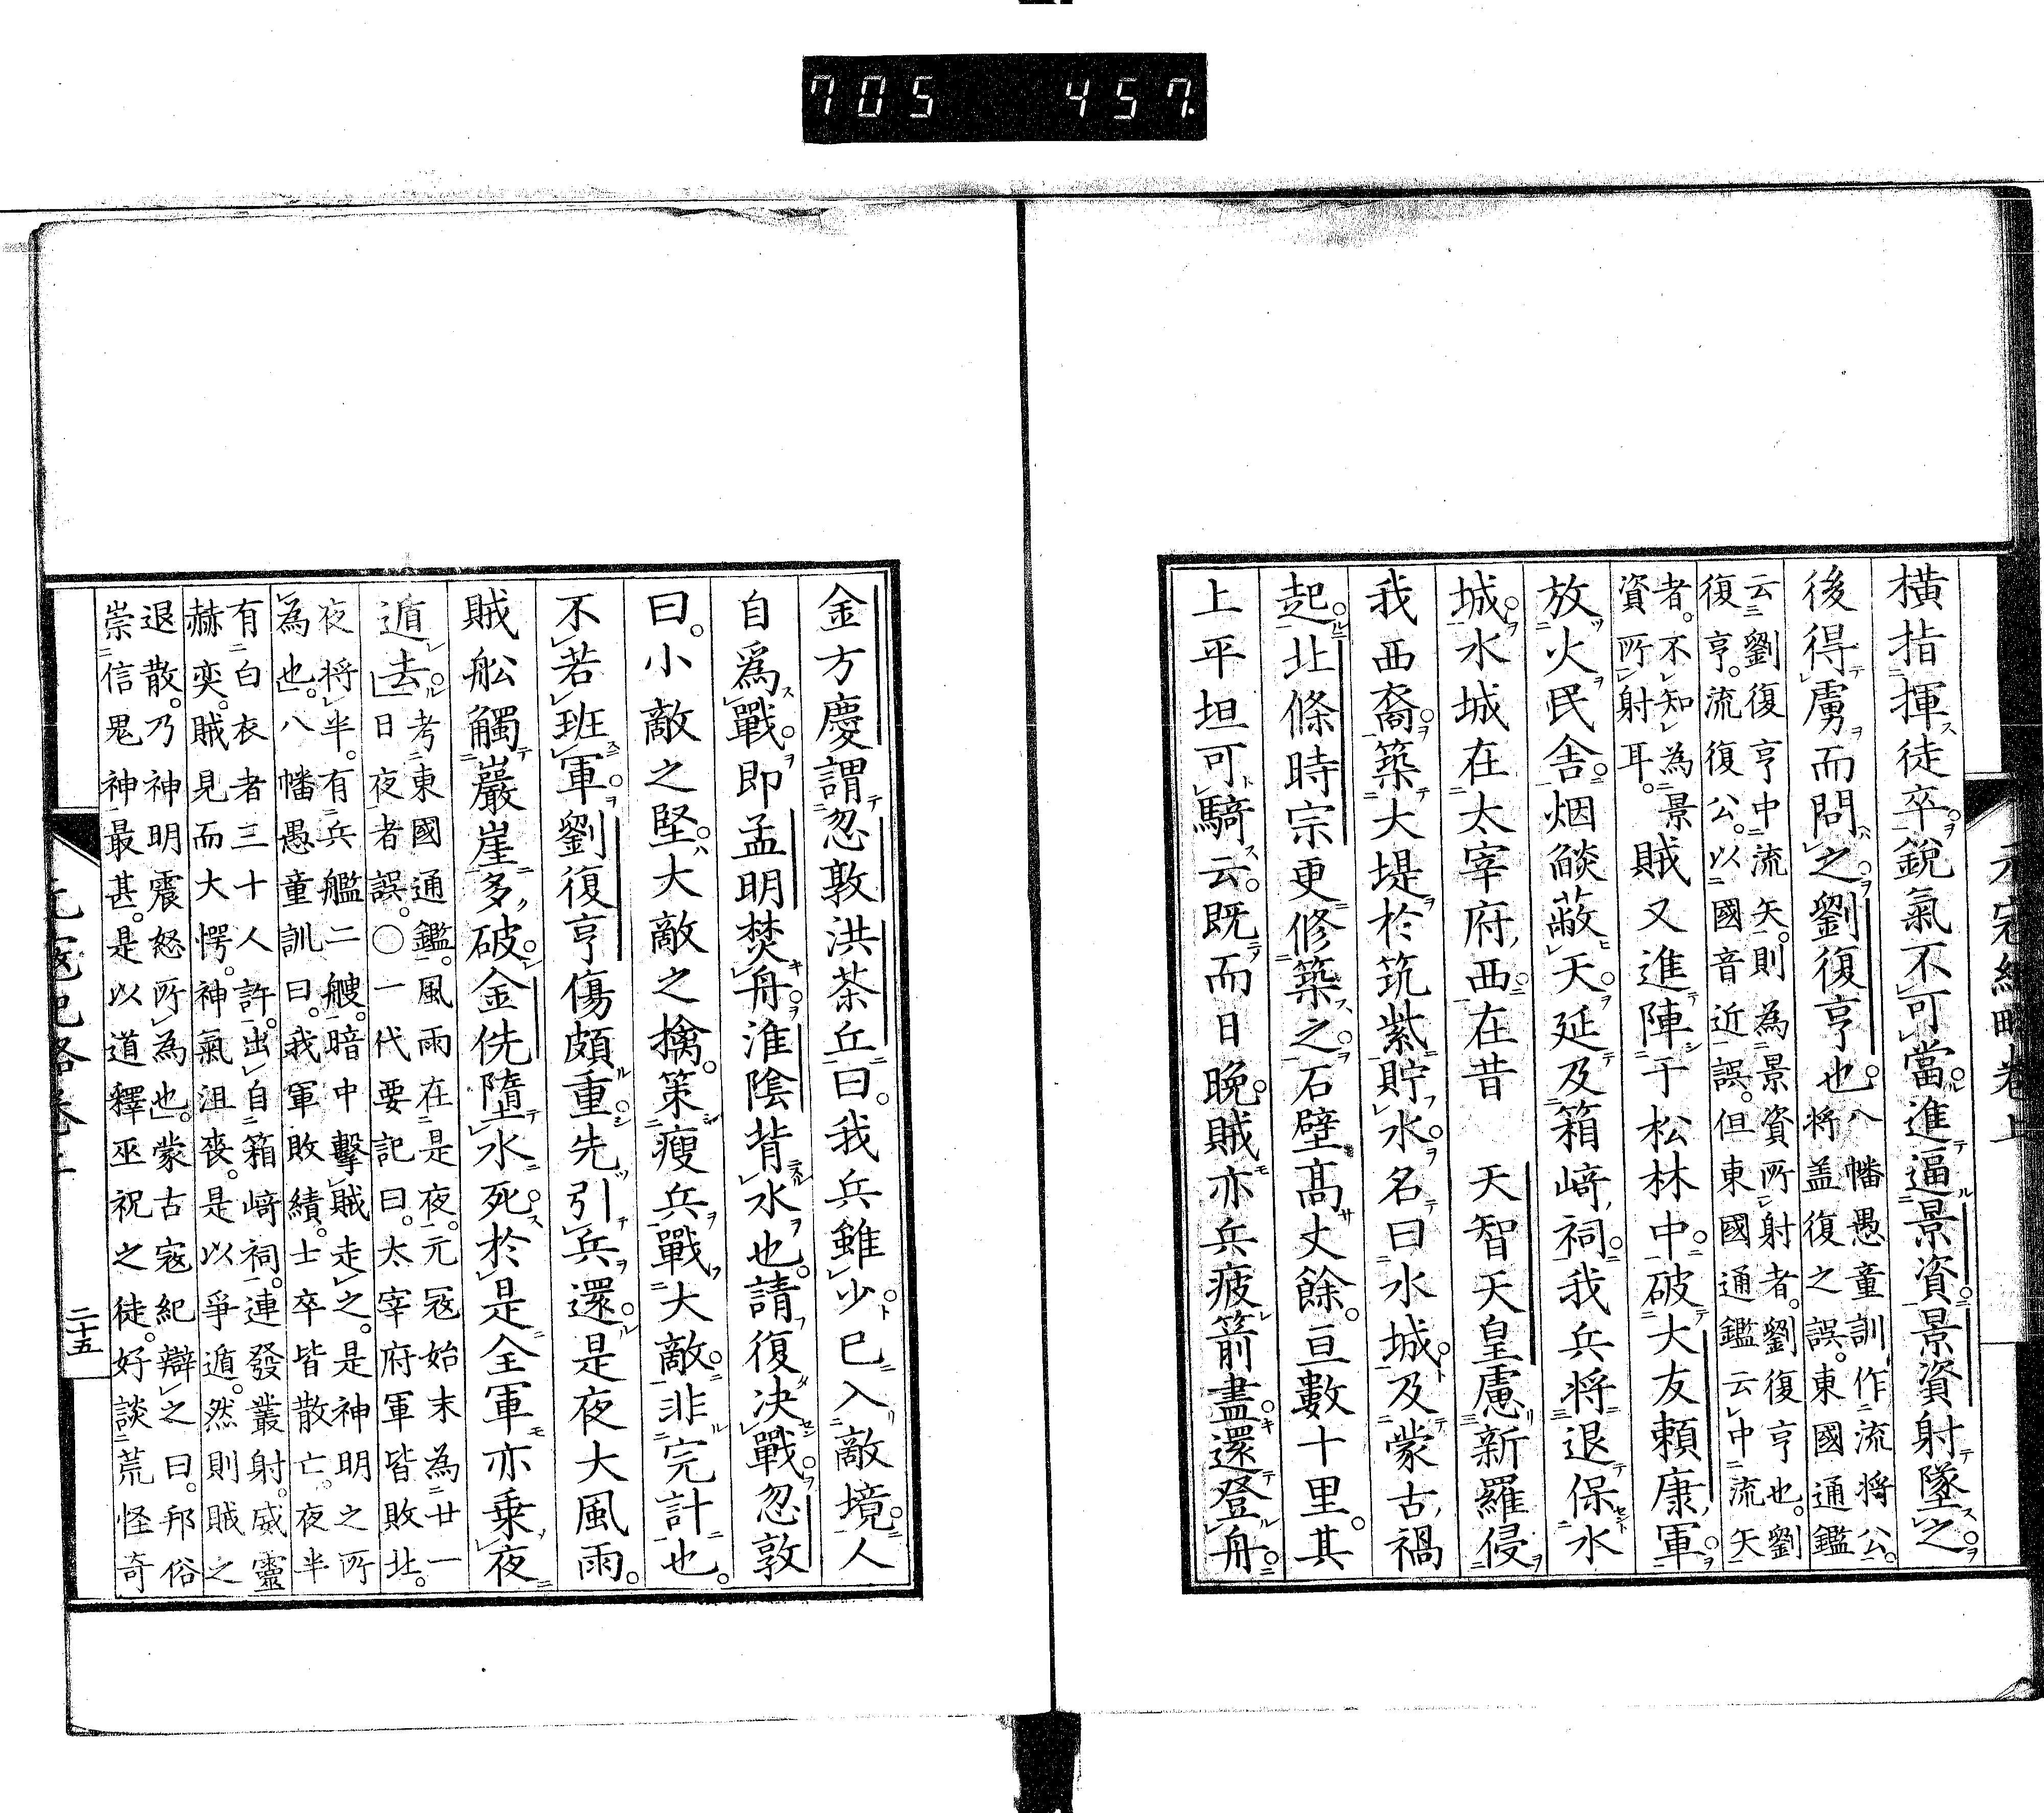 705 457.
橫指揮徒卒。銳氣不可當進逼景資。景資射墜之。
後得虜而問之。劉復亨也。
八幡愚童訓作流將公。
將蓋復之誤。東國通鑑
云劉復亨中流矢。則為景資所射者。劉復亨也。劉
復亨。流復公。以國音近誤。但東國通鑑云中流矢
者。不知為景
資所射耳。
賊又進陣于松林中。破大友賴康軍。
放火民舍。烟燄蔽天。延及箱﨑祠。我兵將退保水
城。水城在太宰府西。在昔 天智天皇慮新羅侵
我西裔。築大堤於筑紫貯水。名曰水城。及蒙古禍
起。北條時宗更修築之。石壁高丈餘。亘數十里。其
上平坦可騎云。既而日晚。賊亦兵疲箭盡。還登舟。
元寇紀略卷上
金方慶謂忽敦洪茶丘曰。我兵雖少。已入敵境。人
自爲戰。即孟明焚舟。淮陰背水也。請復決戰。忽敦
曰。小敵之堅。大敵之擒。策瘦兵戰大敵。非完計也。
不若班軍。劉復亨傷頗重。先引兵還。是夜大風雨。
賊舩觸巖崖多破。金侁墮水死。於是全軍亦乗夜
遁去。
考東國通鑑。風雨在是夜。元寇始末為廿一
日夜者誤。○一代要記曰。太宰府軍皆敗北。
夜將半。有兵艦二艘。暗中擊賊走之。是神明之所
為也。八幡愚童訓曰。我軍敗績。士卒皆散亡。夜半
有白衣者三十人許。出自箱﨑祠。連發叢射。威靈
赫奕。賊見而大愕。神氣沮喪。是以爭遁。然則賊之
退散。乃神明震怒所為也。蒙古寇紀辯之曰。邦俗
崇信鬼神最甚。是以道釋巫祝之徒。好談荒怪奇
元寇紀略卷上
二十五